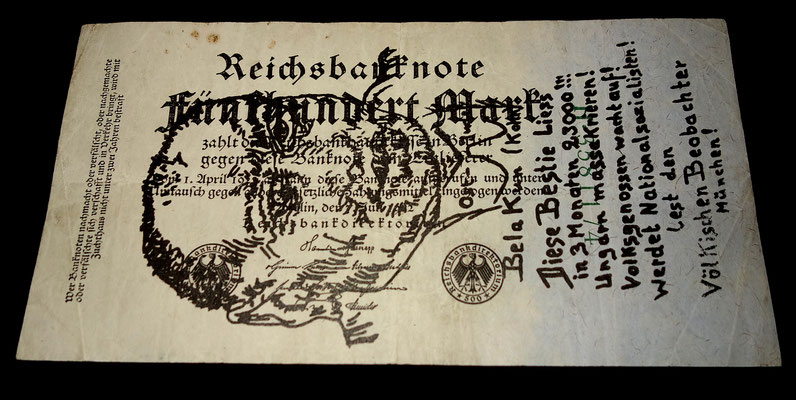 Reichsbanknote
Fünfhundert Mark
zahlt die Reichsbankhauptkasse in Berlin
gegen diese Banknote dem Einlieferer
1. April 19 kann diese Banknote aufgerufen und unter
Umtausch gegen andere gesetzliche Zahlungsmittel eingezogen werden
Berlin, den 7. Juli 1922
Reichsbankdirektorium
Reichsbankdirektorium
Reichsbankdirektorium
500
Wer Banknoten nachmacht oder verfälscht, oder nachgemachte
oder verfälschte sich verschafft und in Verkehr bringt, wird mit
Zuchthaus nicht unter zwei Jahren bestraft
Bela Kun
Diese Bestie Liess
in 3 Monaten 23000 !!!
Ungarn massakrieren!
Volksgenossen wacht auf!
Werdet Nationalsozialisten!
Lest den
Völkischen Beobachter
München!